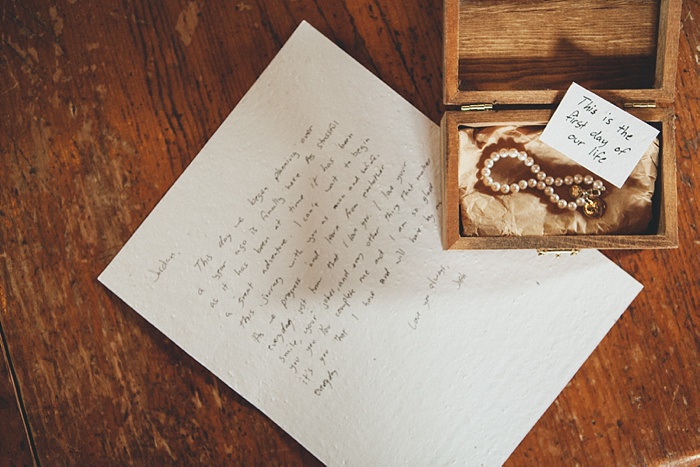 This is the
first day of
our life
Jordan,
This day we began planning over
a year ago is finally here. As stressful
as it has been at time it has been
a great adventure. I can't wait to begin
this journey with you as man and wife.
As we progress and move from
everyday just know that I love you. I love your
smile, your jokes, and any other thing that makes
you you. You complete me and I am so glad
it's you that I have and will have by my
everyday
Love you always,